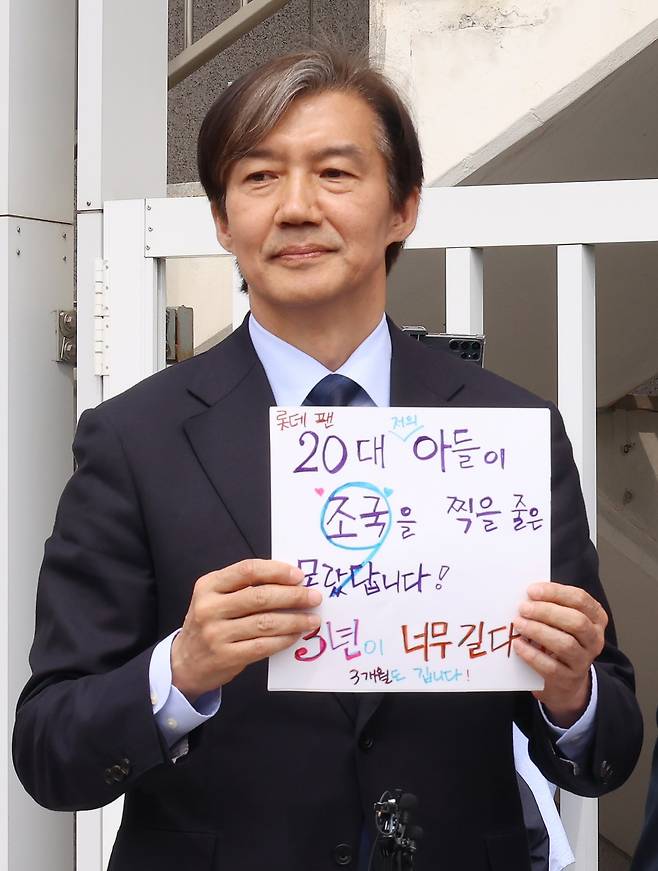 롯데 팬
20대 저의 아들이
조국을 찍을 줄은
몰랐답니다!
3년이 너무 길다
3개월도 깁니다!